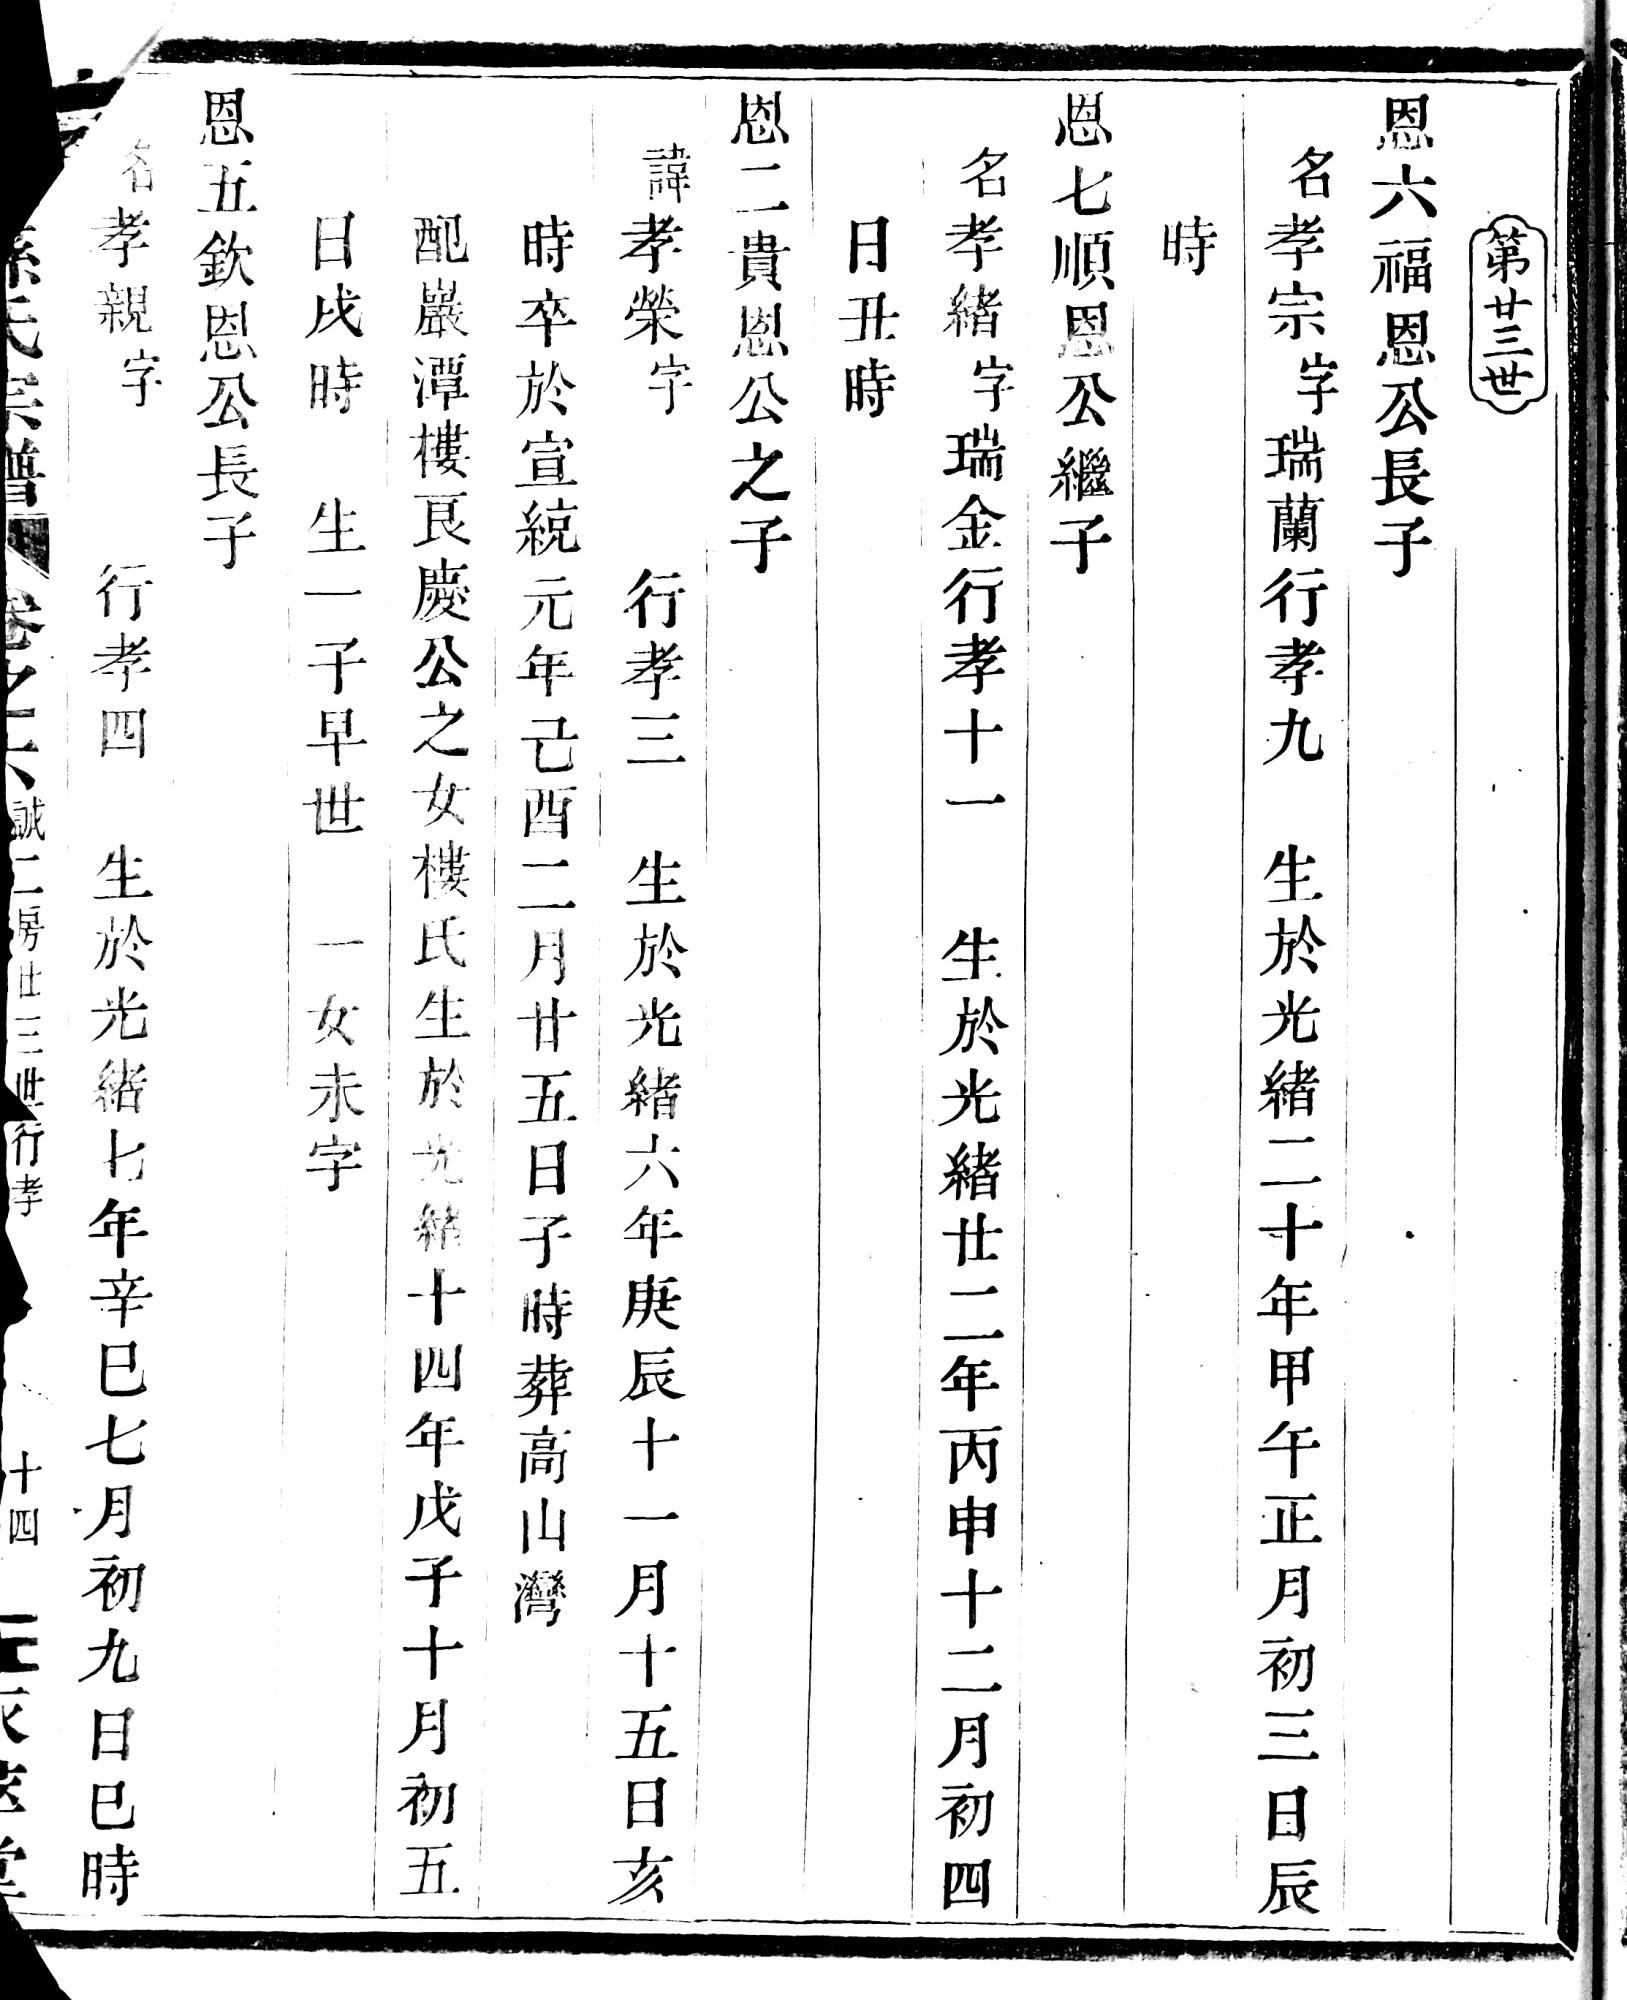 第廿三世
恩六福恩公長子
名孝宗字瑞蘭行孝九　生於光緒二十年甲午正月初三日辰
時
恩七順恩公繼子
名孝緒字瑞金行孝十一　生於光緒廿二年丙申十二月初四
日丑時
恩二貴恩公之子
諱孝榮字　行孝三　生於光緒六年庚辰十一月十五日亥
時卒於宣統元年己酉二月廿五日子時葬高山灣
配巖潭樓艮慶公之女樓氏生於光緒十四年戊子十月初五
日戌時　生一子早世　一女未字
恩五欽恩公長子
名孝親字　行孝四　生於光緒七年辛巳七月初九日巳時
孫氏宗譜　卷之六　誠二房廿三世行孝　十四　堂